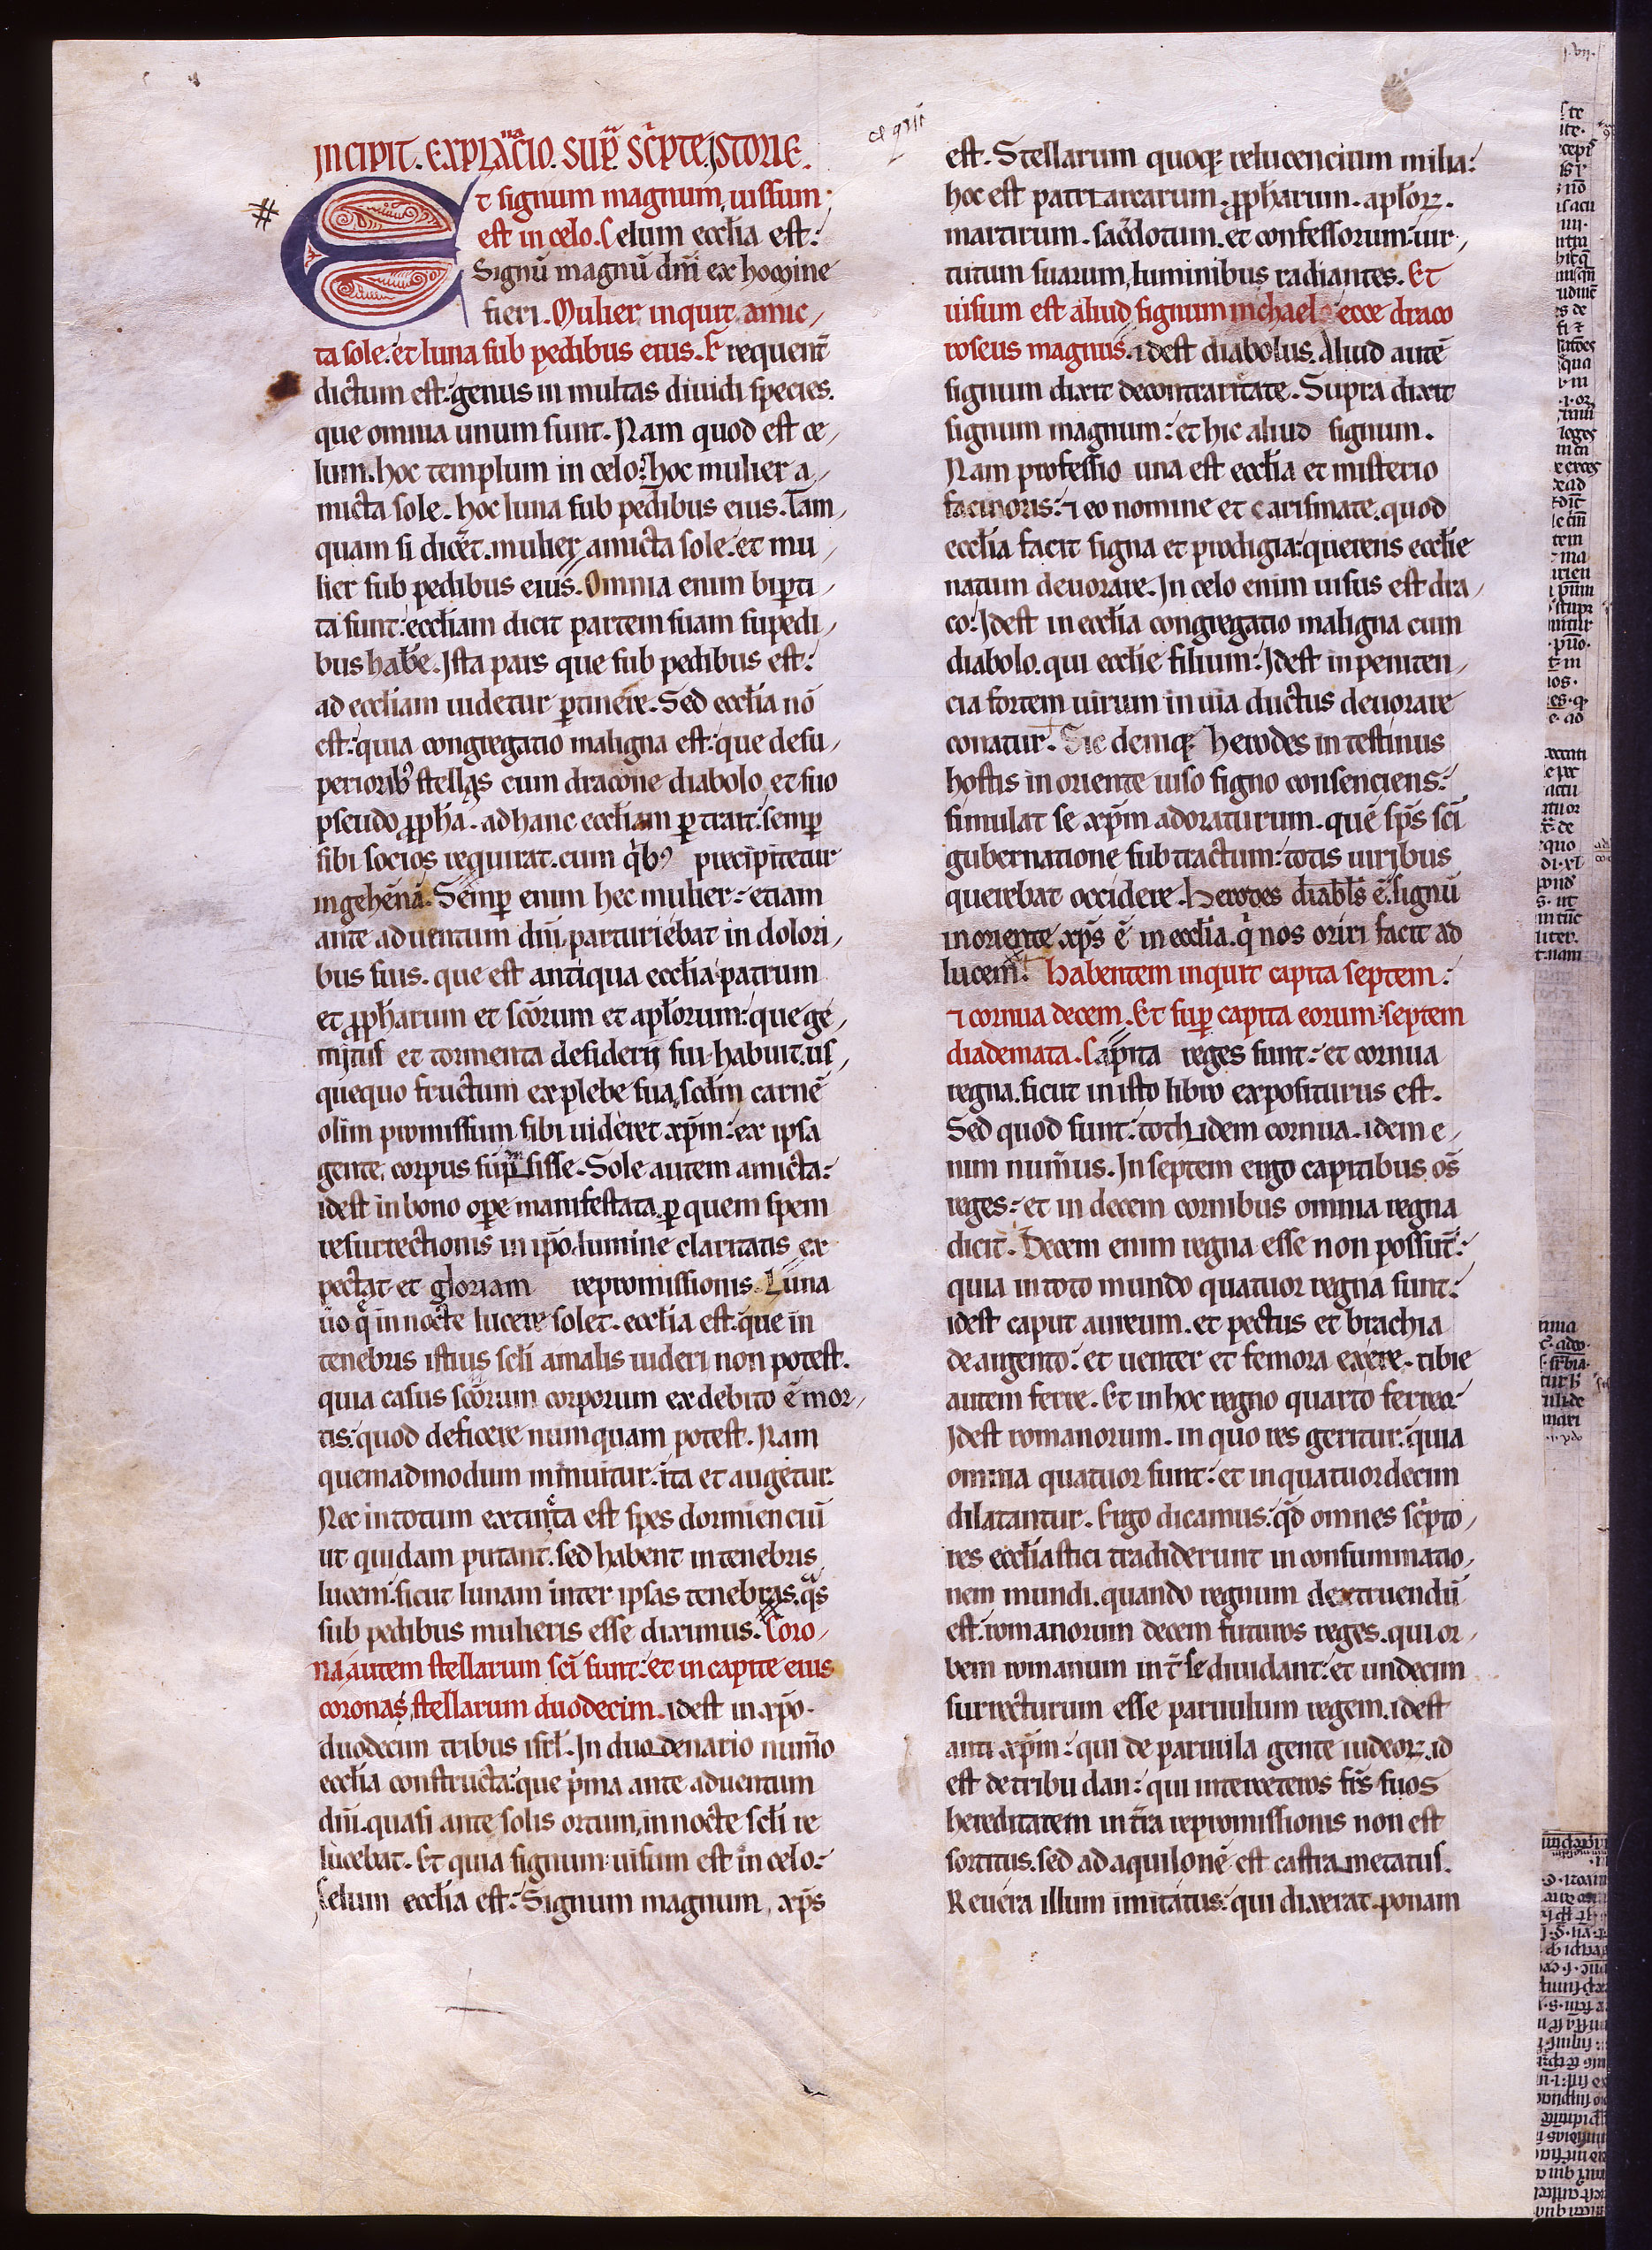 INCIPIT. EXPLANACIO. SUPᵃ SCͥPTE ISTORIE.
Et signum magnum uissum
est in celo. Celum eccłia est:
Signū magnū dn̄i ex homine
fieri. Mulier inquit amic,
ta sole. et luna sub pedibus eius. Frequent̄
dictum est: genus in multas diuidi species.
que omnia unum sunt. Nam quod est ce,
lum. hoc templum in celo: hoc mulier a,
micta sole. hoc luna sub pedibus eius. Tam,
quam si dicēt. mulier amicta sole. et mu,
lier sub pedibus eius. Omnia enim bipͣti,
ta sunt: eccłiam dicit partem suam su pedi,
bus hab̄e. Ista pars que sub pedibus est:
ad eccłiam uidetur ꝑtinere. Sed eccłia nō
est: quia congregatio maligna est: que de su,
periorib; stellas cum dracone diabolo et suo
pseudo ꝓph̄a. ad hanc eccłiam ꝑtrait. semꝑ
sibi socios requirat. cum qͥb; precipitetur
in gehēnā. Semꝑ enim hec mulier: etiam
ante aduentum dn̄i. parturiebat in dolori,
bus suis. que est antiqua eccłia patrum
et ꝓph̄arum et scōrum et apłorum: que ge,
mitus et tormenta desiderij sui habuit. us,
quequo fructum ex plebe sua, scdm̄ carnē
olim promissum sibi uideret xp̄m: ex ipsa
gente, corpus sumpsisse. Sole autem amicta:
idest in bono oꝑe manifestata. ꝑ quem spem
resurrectionis in ip̄o. lumine claritatis ex
pectat et gloriam repromissionis. Luna
ūo q̄ in nocte lucere solet. eccłia est. que in
tenebris istius scłi amalis uideri non potest.
quia casus scōrum corporum ex debito ē mor,
tis: quod deficere numquam potest. Nam
quemadmodum minuitur: ita et augetur.
Nec in totum extincta est spes dormienciū
ut quidam putant. sed habent in tenebris
lucem: sicut lunam inter ipsas tenebras. qͣs
sub pedibus mulieris esse diximus. Coro,
na autem stellarum scī sunt: et in capite eius
coronas stellarum duodecim. idest in xp̄o.
duodecim tribus isrł. In duodenario num̄o
eccłia constructa: que pͥma ante aduentum
dn̄i. quasi ante solis ortum, in nocte scłi re
lucebat. Et quia signum uisum est in celo:
Celum eccłia est: Signum magnum, xp̄s
est. Stellarum quoqꝫ relucencium milia:
hoc est patriarcarum. ꝓph̄arum. apłoꝝ.
martirum. sac̄dotum. et confessorum. uir,
tutum suarum, luminibus radiantes. Et
uisum est aliud signum michael ecce draco
roseus magnus. idest diabolus. Aliud autē
signum dixit decontrarietate. Supra dixit
signum magnum: et hic aliud signum.
Nam professio una est eccłia et misterio
facinoris: ⁊ eo nomine et carismate. quod
eccłia facit signa et prodigia: querens eccłie
natum deuorare. In celo enim uisus est dra,
co: Idest in eccłia congregatio maligna cum
diabolo. qui eccłie filium: Idest in peniten,
cia fortem uirum in uia ductus deuorare
conatur. Sic deniqꝫ herodes intestinus
hostis in oriente uiso signo consenciens:
simulat se xp̄m adoraturum. quē sp̄s scī
gubernatione subtractum: totis uiribus
querebat occidere. Herodes diabłs ē. signū
in oriente xp̄s ē in eccłia. qͥ nos oriri facit ad
lucem. Habentem inquit capita septem:
⁊ cornua decem. Et suꝑ capita eorum septem
diademata. Capita reges sunt: et cornua
regna. sicut in isto libro expositurus est.
Sed quod sunt: tothidem cornua. idem e,
nim num̄us. In septem ergo capitibus os̄
reges: et in decem cornibus omnia regna
dicit. Decem enim regna esse non possūt:
quia in toto mundo quatuor regna sunt:
idest caput aureum. et pectus et brachia
de argento: et uenter et femora ex ere. tibie
autem ferre. Et in hoc regno quarto ferreo:
Idest romanorum. in quo res geritur. quia
omnia quatuor sunt: et in quatuordecim
dilatantur. Ergo dicamus: qd̄ omnes scͥpto,
res eccłiastici tradiderunt in consummatio,
nem mundi. quando regnum dextruendū
est. romanorum decem futuros reges. qui or,
bem romanum int̄ se diuidant: et undecim
surrecturum esse paruulum regem. idest
anti xp̄m: qui de paruila gente iudeoꝝ. id
est de tribu dan: qui inter ceteros frs̄ suos
hereditatem in tr̄a repromissionis non est
sortitus. sed ad aquilonē est castra metatus.
Reuera illum imitatus: qui dixerat. ponam